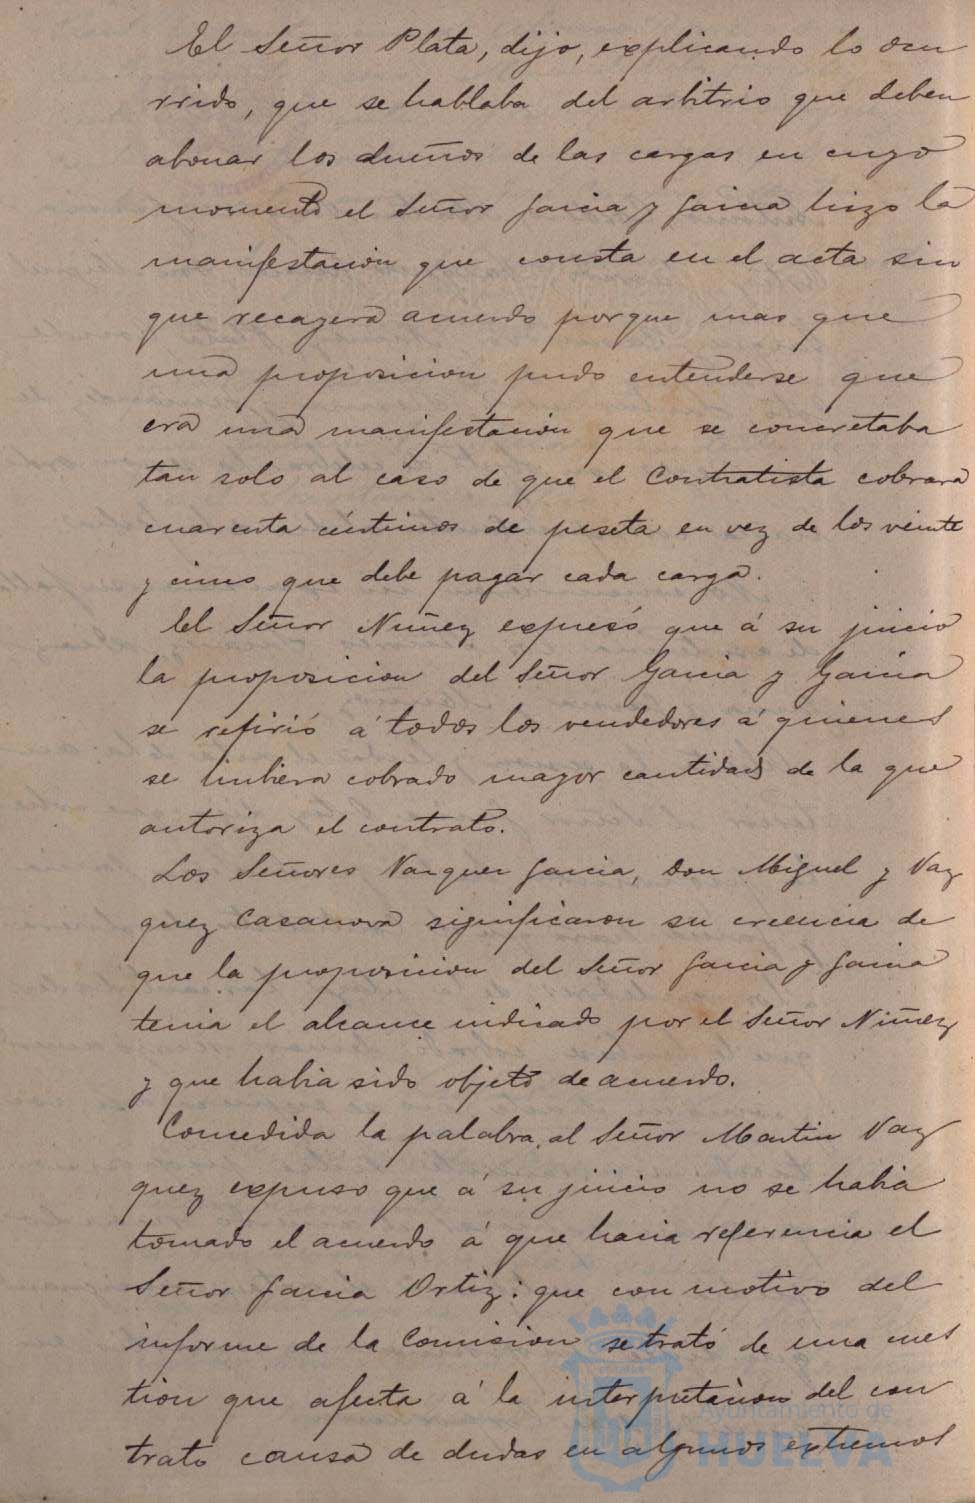 El Señor Plata, dijo, explicando lo ocu
rrido, que se hablaba del arbitrio que deben
abonar los dueños de las cargas en cuyo
momento el Señor Garcia y Garcia hizo la
manifestacion que consta en el acta sin
que recayera acuerdo porque mas que
una proposicion pudo entenderse que
era una manifestacion que se concretaba
tan solo al caso de que el Contratista cobrara
cuarenta céntimos de peseta en vez de los veinte
y cinco que debe pagar cada carga.
El Señor Nuñez expresó que á su juicio
la proposicion del Señor Garcia y Garcia
se refirió á todos los vendedores á quienes
se hubiera cobrado mayor cantidad de la que
autoriza el contrato.
Los Señores Vazquez Garcia, Don Miguel y Vaz
quez Casanova significaron su creencia de
que la proposicion del Señor Garcia y Garcia
tenia el alcance indicado por el Señor Nuñez
y que habia sido objeto de acuerdo.
Concedida la palabra al Señor Martin Vaz
quez expuso que á su juicio no se habia
tomado el acuerdo á que hacia referencia el
Señor Garcia Ortiz: que con motivo del
informe de la Comision se trató de una cues
tion que afecta á la interpretacion del con
trato causa de dudas en algunos extremos
Ayuntamiento de
HUELVA